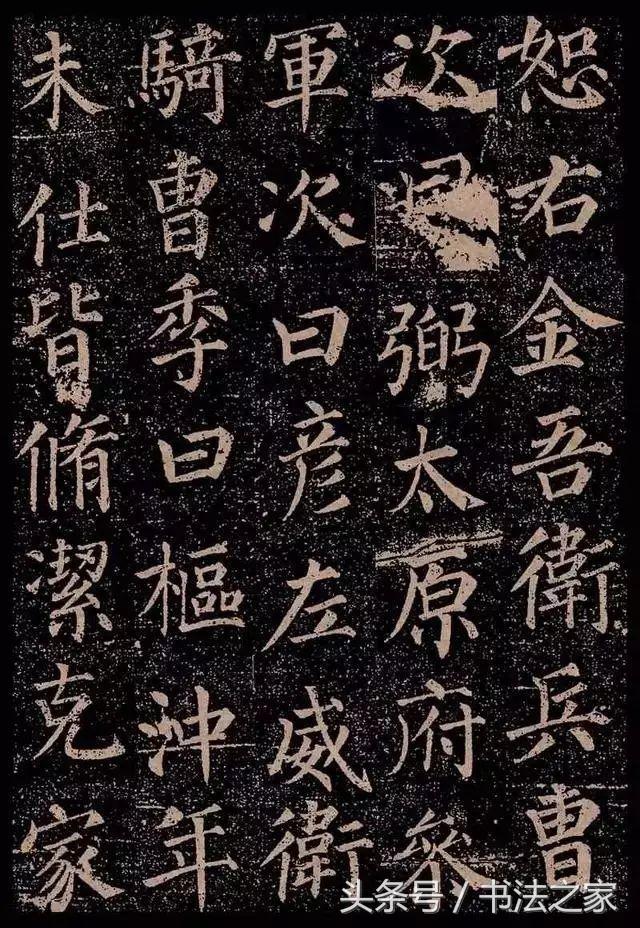 恕右金吾衛兵曹
次弼太原府叅
軍次曰彦左威衛
騎曹季曰樞沖年
未仕皆脩潔克家
头条号 / 书法之家